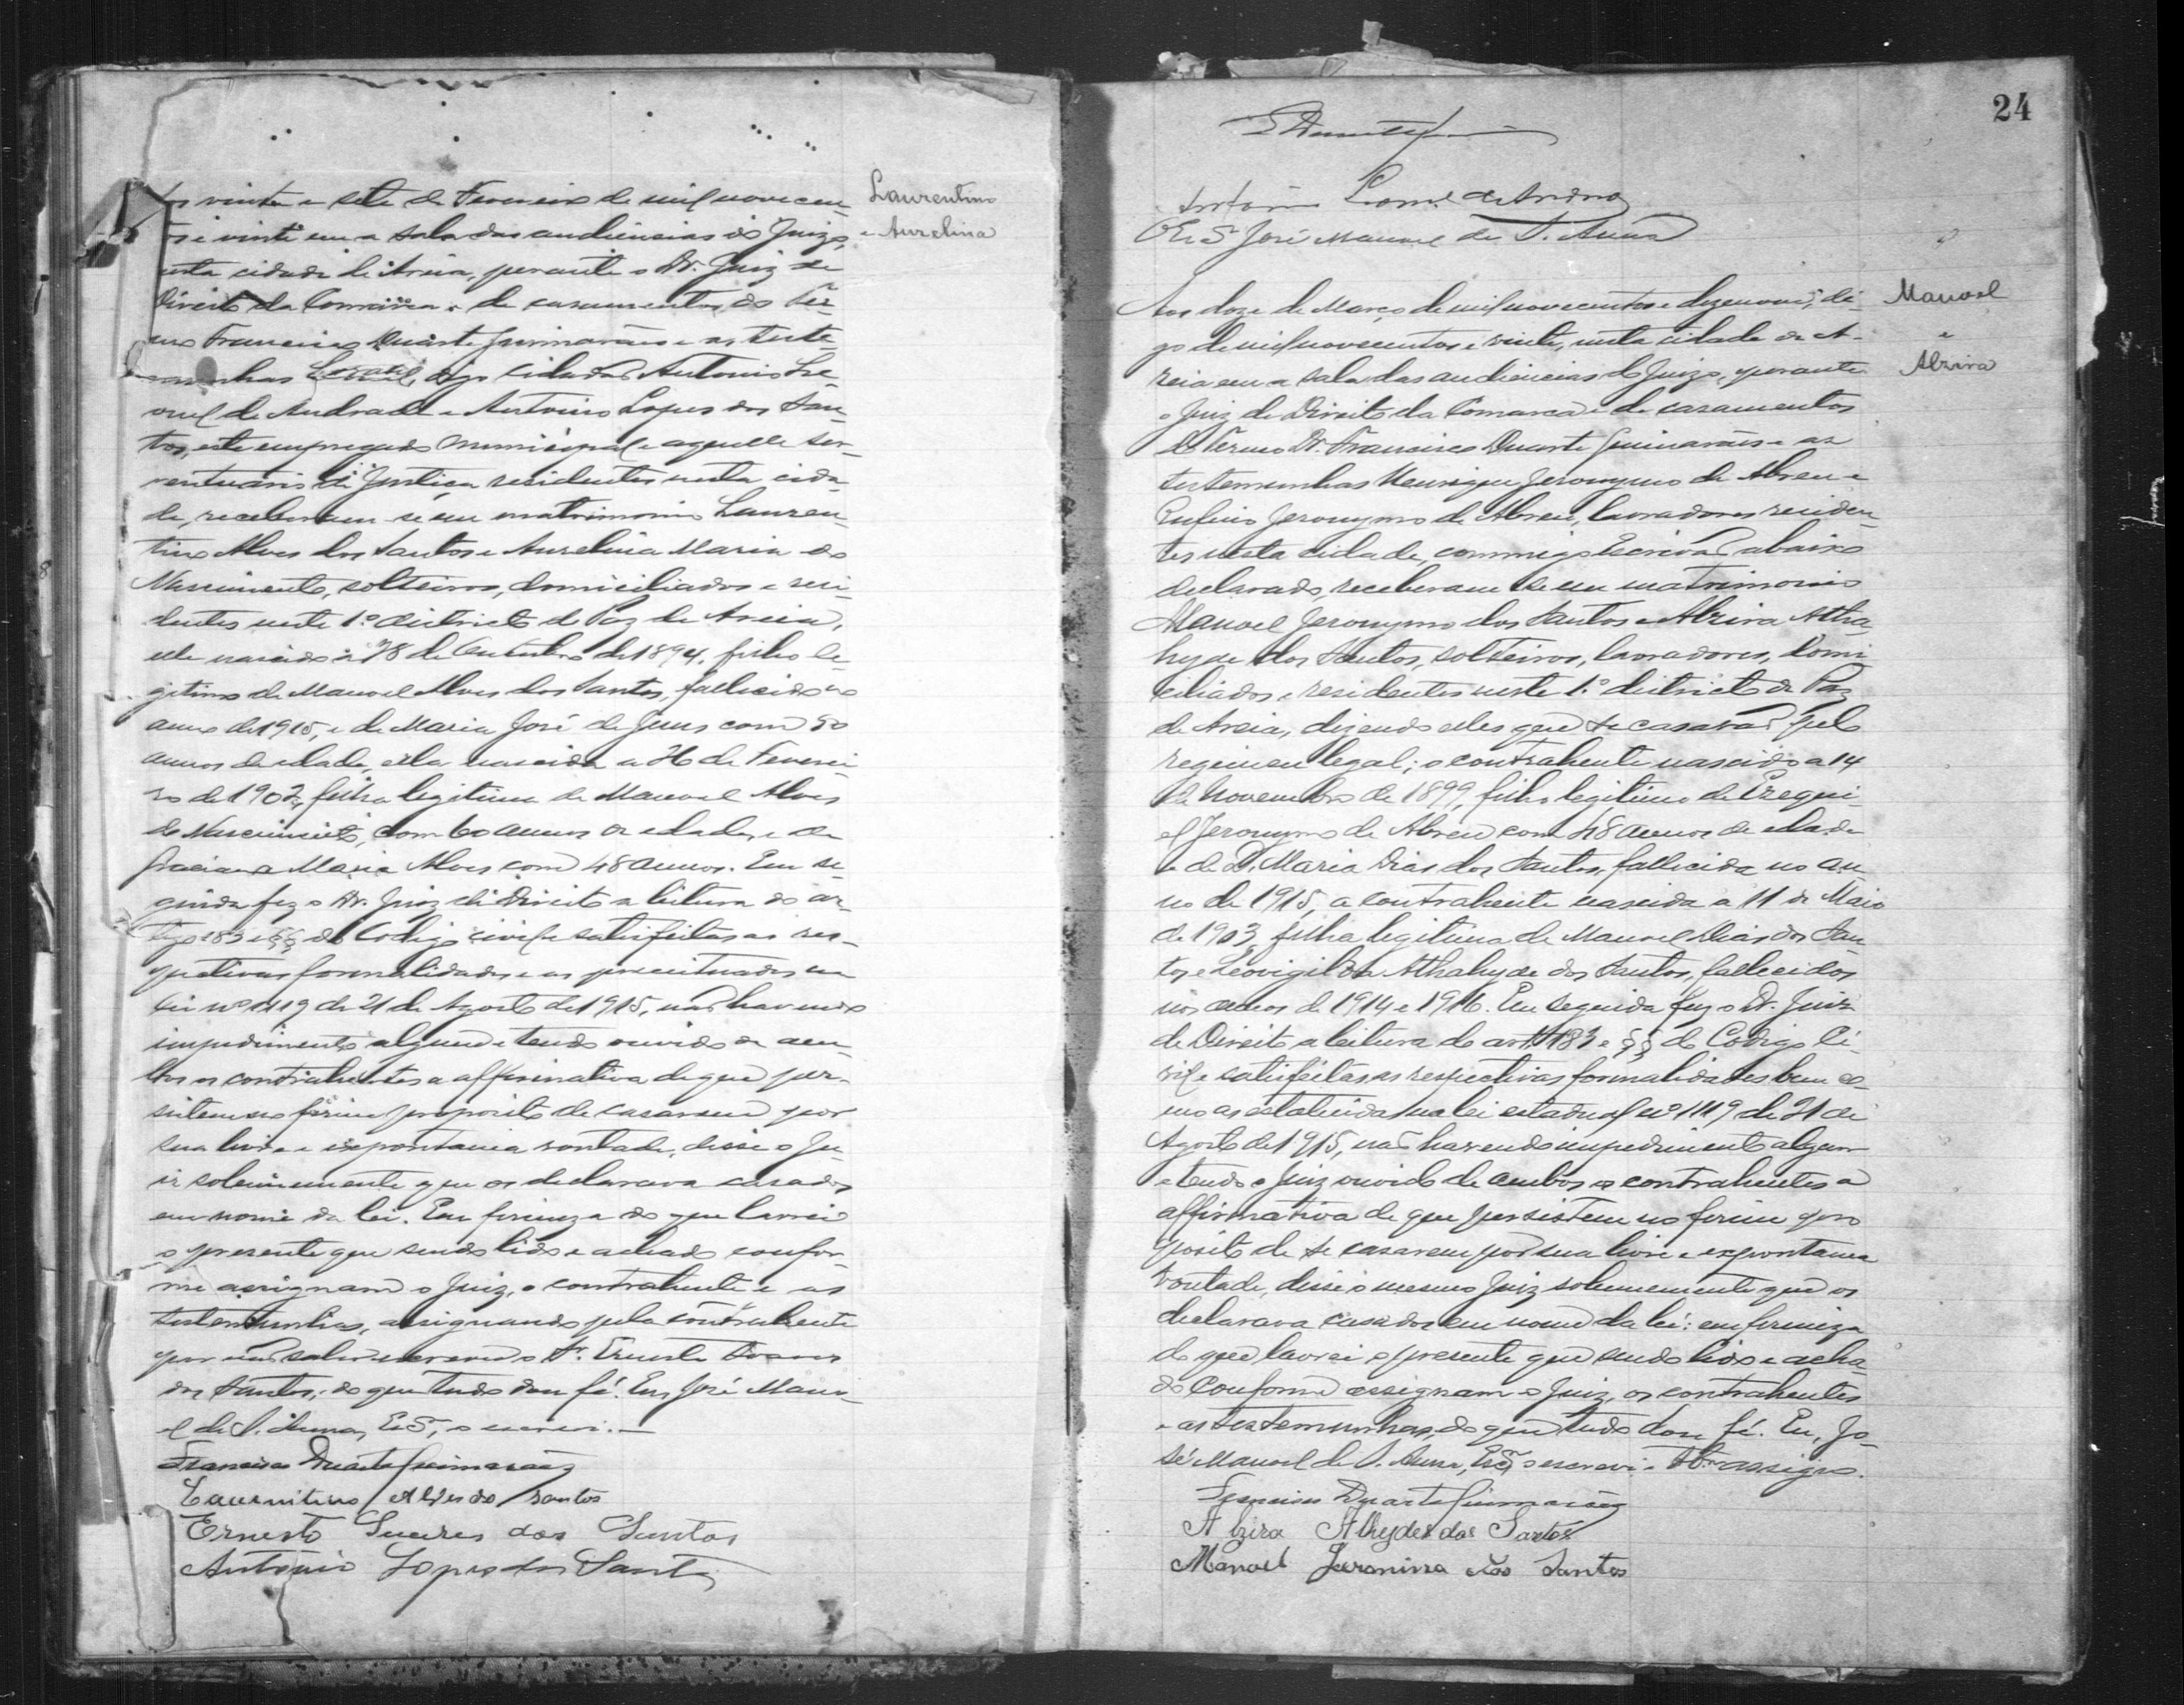 vinte e sete de Fevereiro de mil novecen-
tos e vinte em a sala das audiencias do Juizo,
nesta cidade de Areia, perante o Dr. Juiz de
Direito da Comarca e de casamentos do Ter-
mo Francisco Duarte Guimarães e as teste-
munhas digo cidadãos Antonio Leo-
nel de Andrade e Antonio Lopes dos San-
tos, este empregado Municipal e aquelle ser-
ventuario de Justiça residentes nesta cida-
de, receberam-se em matrimonio Lauren-
tino Alves dos Santos e Aurelina Maria do
Nascimento, solteiros, domiciliados e resi-
dentes neste 1º districto de Paz de Areia,
elle nascido a de 1894, filho le-
gitimo de Manoel Alves dos Santos, fallecido no
anno de 1915, e de Maria José de Jesus com 50
annos de edade, ella nascida a 26 de Feverei-
ro de 1902, filha legitima de Manoel Alves
do Nascimento, com 60 annos de edade, e de
Graciana Maria Alves com 48 annos. Em se-
guida fez o Dr. Juiz de Direito a leitura do ar-
tigo 183 e §§ do Codigo civil e satisfeitas as res-
pectivas formalidades e as preceituadas na
Lei nº 1119 de 21 de Agosto de 1915, não havendo
impedimento algum e tendo ouvido de am-
bos os contrahentes a affirmativa de que per-
sistem no firme proposito de casarem por
sua livre e expontania vontade, disse o Ju-
iz solemnemente que os declarava casados
em nome da lei. Em firmeza do que lavrei
o presente que sendo lido e achado confor-
me assignam o Juiz, o contrahente e as
testemunhas, assignando pela contrahente
por não saber escrever o Sr. Ernesto Soares
dos Santos, do que tudo dou fé. Eu, José Mano-
el de S. Anna, o escrevi.—
Francisco Duarte Guimarães
Laurentino Alves do Santos
Ernesto Suares dos Santos
Antonio Lopes dos Santos
Laurentino
e Aurelina
24
Antonio Leonel de Andrade
José Manoel de S. Anna
Aos doze de Março de mil novecentos e dezenove, di-
go de mil novecentos e vinte, nesta cidade de A-
reia em a sala das audiencias do Juizo, perante
o Juiz de Direito da Comarca e de casamentos
do Termo Dr. Francisco Duarte Guimarães e as
testemunhas Henrique Jeronymo de Abreu e
Rufino Jeronymo de Abreu, lavradores residen-
tes nesta cidade, commigo Escrivão abaixo
declarado, receberam-se em matrimonio
Manoel Jeronymo dos Santos e Alzira Atha-
hyde dos Santos, solteiros, lavradores, domi-
ciliados e residentes neste 1º districto de Paz
de Areia, dizendo elles que se casavão pelo
regimen legal; o contrahente nascido a 14
de Novembro de 1899, filho legitimo de Ezequi-
el Jeronymo de Abreu com 48 annos de edade
e de D. Maria Dias dos Santos, fallecida no an-
no de 1915, a contrahente nascida a 11 de Maio
de 1903, filha legitima de Manoel Dias dos San-
tos e Leovigilda Athahyde dos Santos, fallecidos
nos annos de 1914 e 1916. Em seguida fez o Dr. Juiz
de Direito a leitura do art. 183 e §§ do Codigo Ci-
vil e satisfeitas as respectivas formalidades bem co-
mo as estatuidas na lei estadual nº 1119 de 21 de
Agosto de 1915, não havendo impedimento algum
e tendo o Juiz ouvido de ambos os contrahentes a
affirmativa de que persistem no firme pro
posito de se casarem por sua livre e expontanea
vontade, disse o mesmo Juiz solemnemente que os
declarava casados em nome da lei: em firmeza
do que lavrei o presente que sendo lido e acha-
do conforme assignam o Juiz, os contrahentes
e as testemunhas, do que tudo dou fé. Eu, Jo-
sé Manoel de S. Anna, o escrevi e assigno.
Francisco Duarte Guimarães
Alzira Athydes dos Santos
Manoel Jeronimo dos Santos
Manoel
e
Alzira